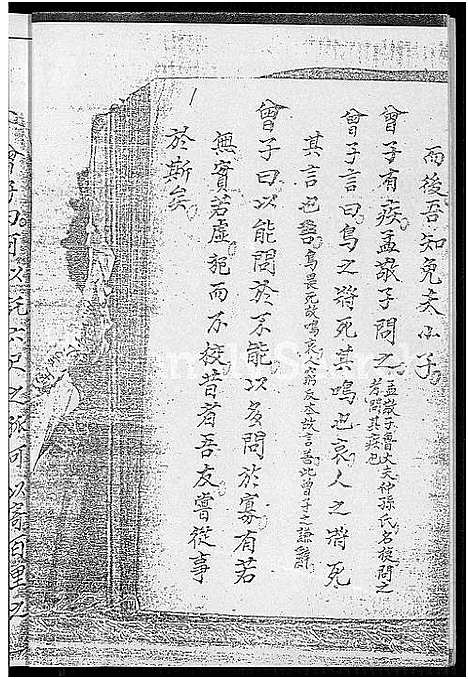 而後吾知免夫小子
曾子有疾孟敬子問之孟敬子魯大夫仲孫氏名捷問之者問其疾也
曾子言曰鳥之將死其鳴也哀人之將死
其言也善鳥畏死故鳴哀人窮反本故言善此曾子之謙辭
曾子曰以能問於不能以多問於寡有若
無實若虛犯而不校昔者吾友嘗從事
於斯矣
曾子曰可以託六尺之孤可以寄百里之